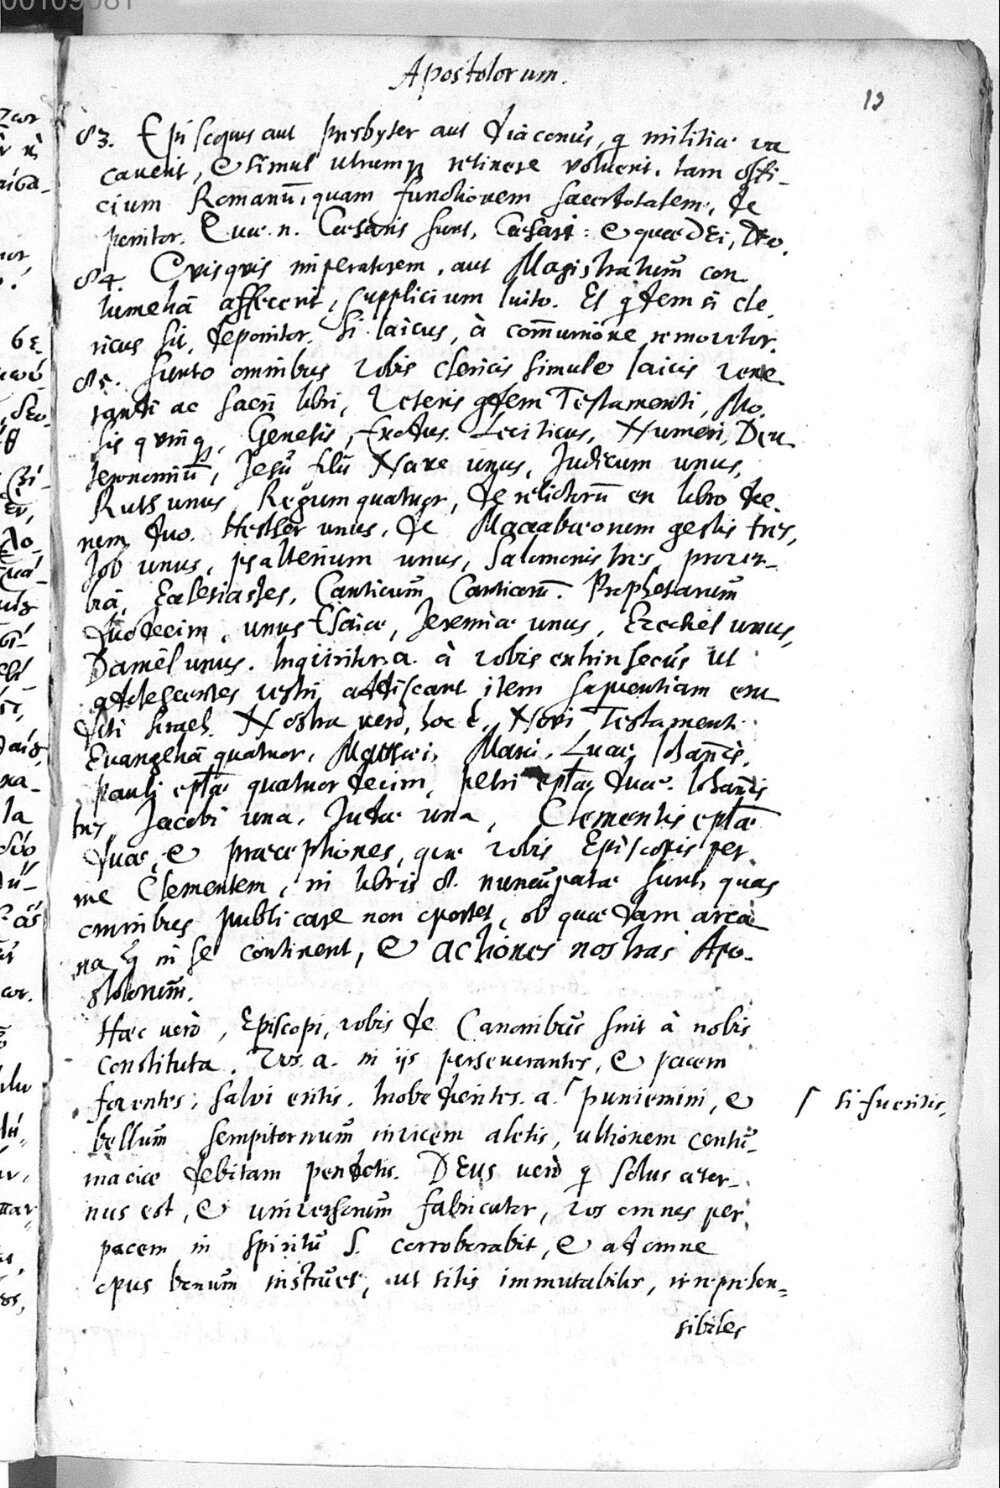 00109081
Apostolorum.
13
83. Episcopus aut presbyter aut diaconus, q militiæ va
caverit, & simul utrumq retinere voluerit, tam offi-
cium Romanū, quam functionem sacerdotalem, de
ponitor. Quæ .n. Cæsaris sunt, Cæsari : & quæ DEi, Deo.
84. Quisquis imperatorem, aut Magistratum con
tumeliā affecerit, supplicium luito. Et qdem si cle
ricus sit, deponitor. Si laicus, à com̄unione removetor.
85. Sunto omnibus vobis clericis simul & laicis vene
randi ac sacri libri, Veteris qdem Testamenti, Mo
sis quinq, Genesis, Exodus. Leviticus, Numeri, Deu
teronomiū, Jesu filii Nave unus, Judicum unus,
Ruth unus Regum quatuor, de relictorū en libro die
rum duo. Hester unus, de Macabæorum gestis tres,
Job unus, psalterium unus, Salomonis tres, prover-
bia, Ecclesiastes, Canticum Canticorū. Prophetarum
duodecim, unus Esaiæ, Jeremiæ unus, Ezechiel unus,
Daniel unus. Inquiritor .a. à vobis extrinsecus ut
adolescentes vestri addiscant item sapientiam eru
diti Sirach. Nostra verò, hoc ē, Novi Testamenti
Evangelia quatuor, Matthæi, Marci, Lucæ, Johannis,
Pauli eplæ quatuor decim, Petri eplæ duæ. Johannis
tres, Jacobi una, Judæ una, Clementis eplæ
duæ, & præceptiones, quæ vobis Episcopis per
me Clementem, in libris 8. nuncupatæ sunt, quas
omnibus publicare non oportet, ob quædam arca
na q in se continent, & actiones nostras Apo-
stolorum.
Hæc verò, Episcopi, vobis de Canonibus sint à nobis
constituta. Vos .a. in iis perseverantes, & pacem
foventes, salvi eritis. Inobedientes .a. ⌈ puniemini, &
⌈ si fueritis,
bellum sempiternum invicem aletis, ultionem contu-
maciæ debitam pendetis. DEus verò q solus æter-
nus est, & universorum fabricator, vos omnes per
pacem in Spiritu S. corroborabit, & ad omne
opus bonum instruet, ut sitis immutabiles, irreprehen-
sibiles